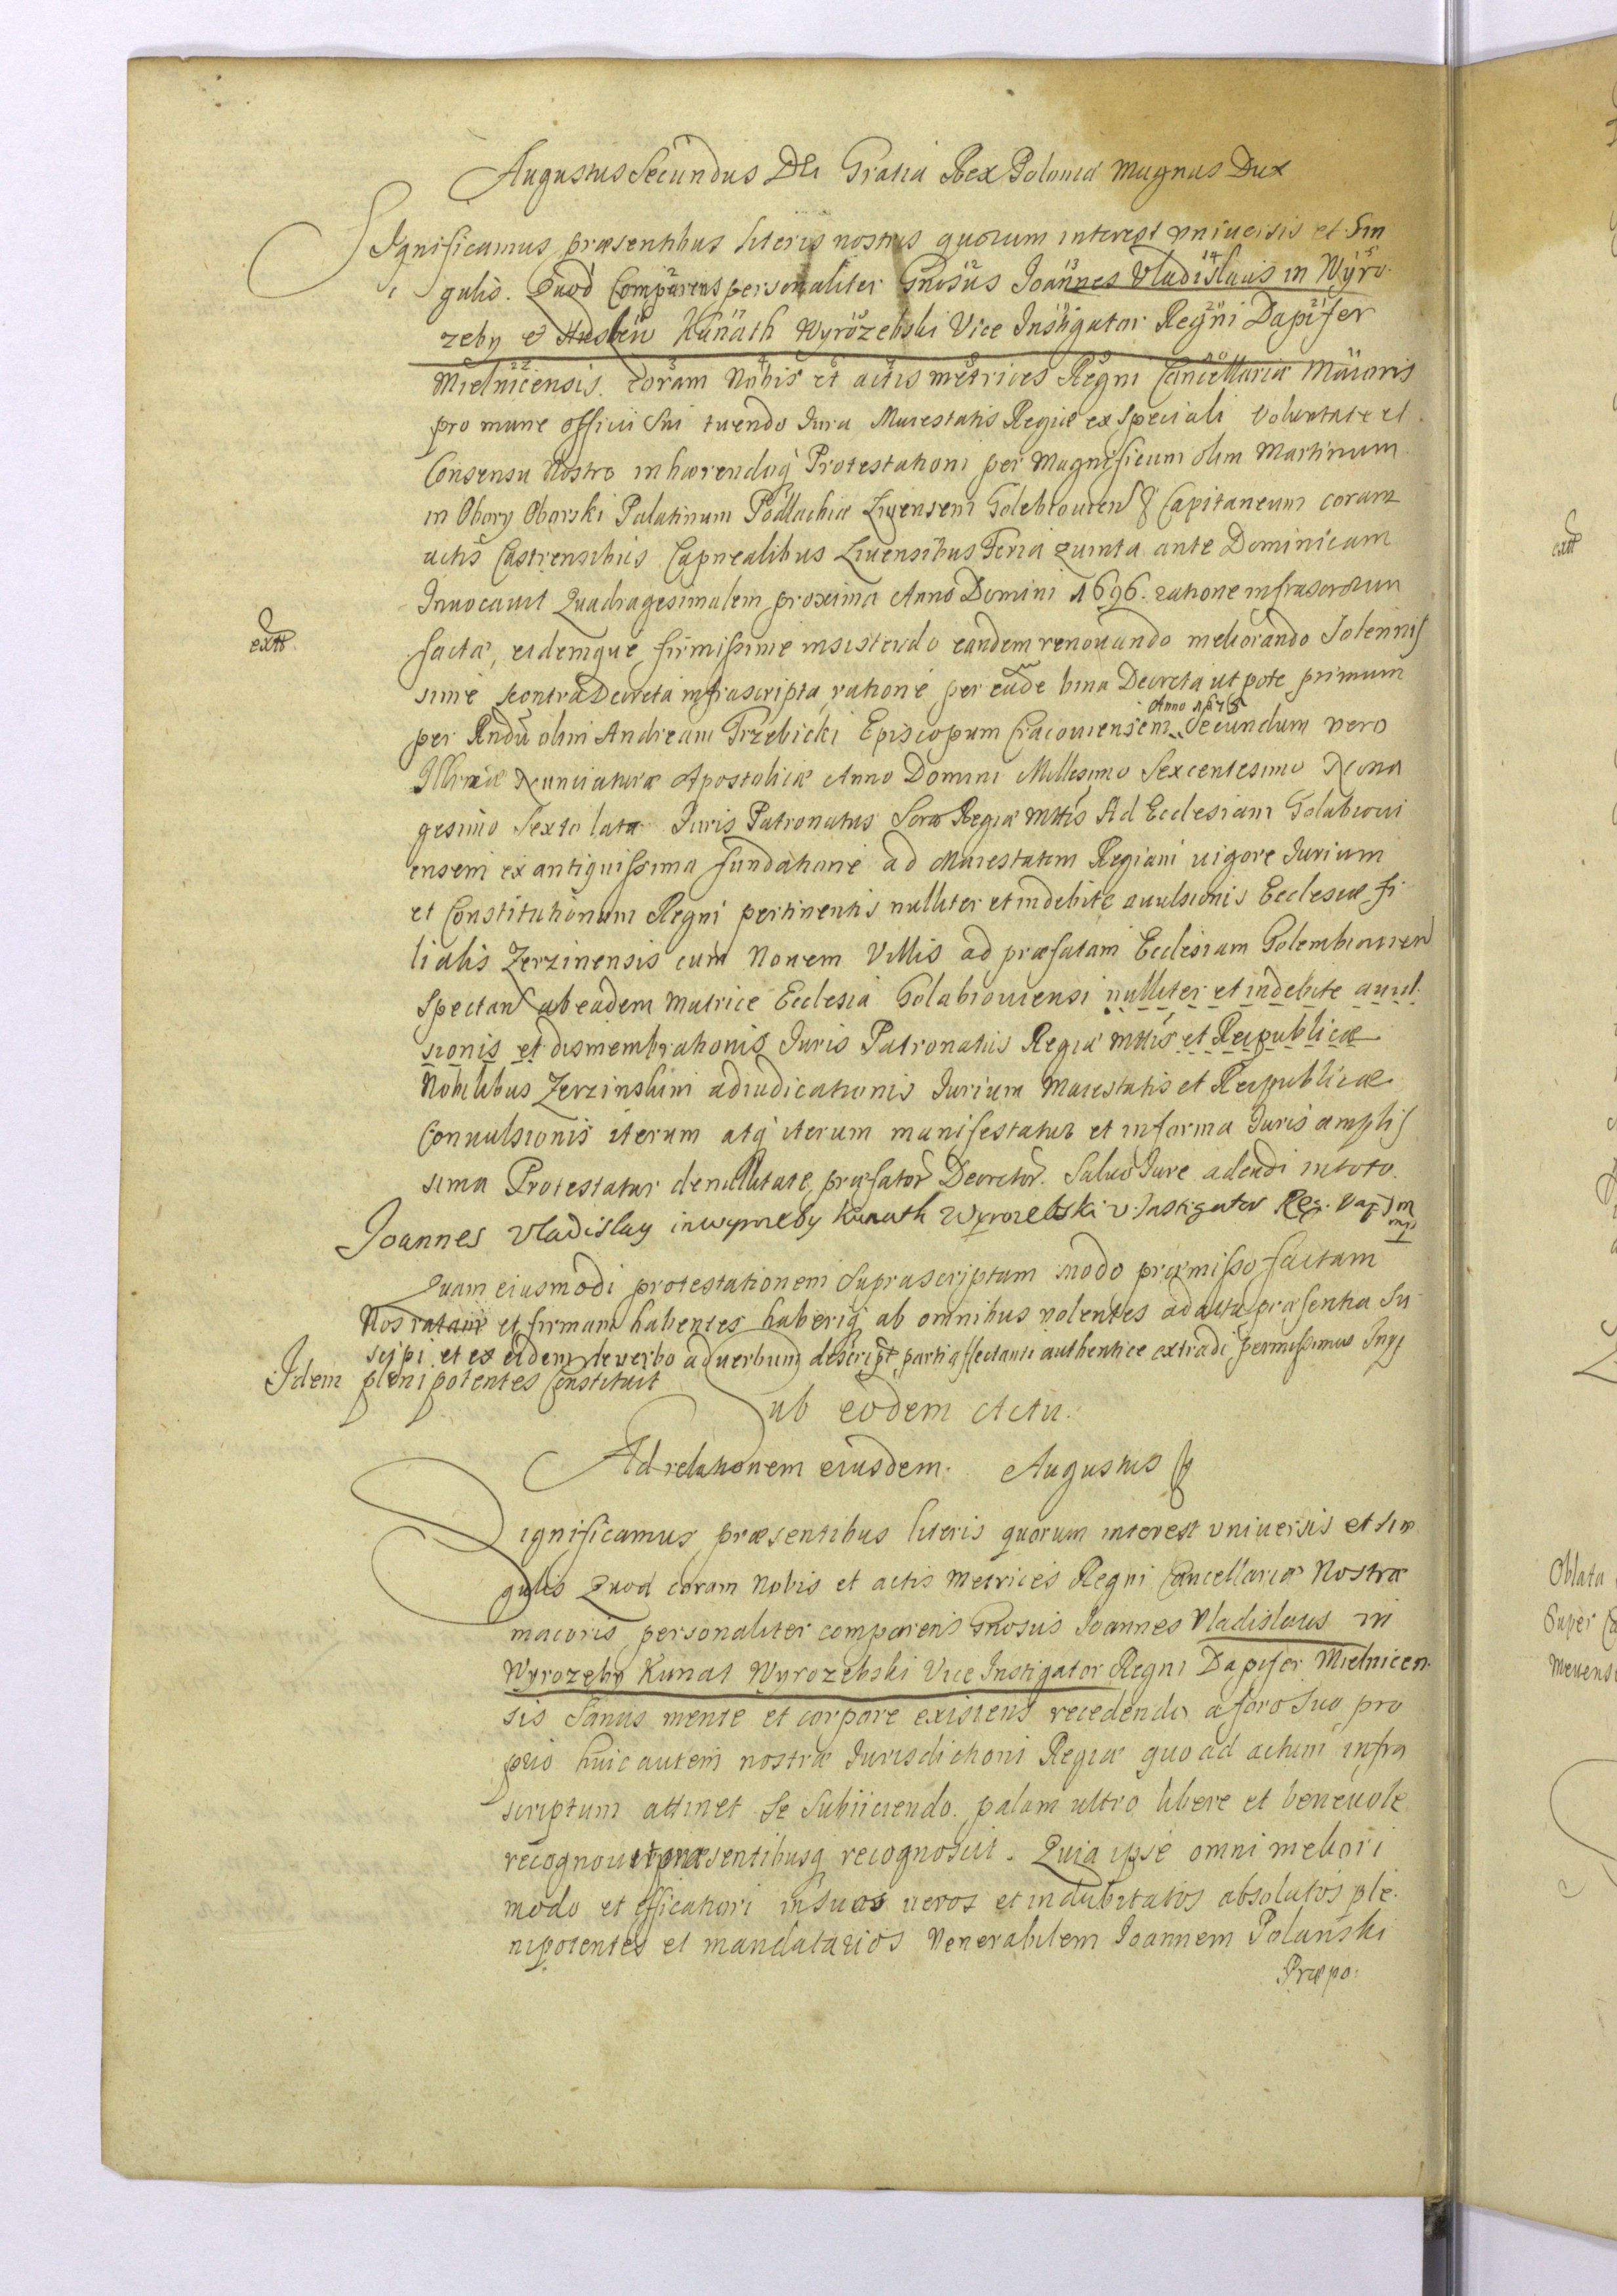 Augustus Secundus Dei Gratia Rex Poloniæ Magnus Dux
Significamus præsentibus literis nostris quorum interest vniuersis et Sin
gulis. Quod Comparens personaliter Gnosus Joannes Vladislaus in Wyro
zęby Kunath Wyrozębski Vice Instigator Regni Dapifer
Mielnicensis. coram Nobis et actis metrices Regni Cancellariæ Maioris
pro mune officii sui tuendo Jura Maiestatis Regiæ ex speciali voluntate et
Consensu Nostro inhærendoq Protestationi per Magnificum olim Martinum
in Obory Oborski Palatinum Podlachiæ Liuensem Golebiouien & Capitaneum coram
actis Castrensibus Capnealibus Liuensibus Feria quinta ante Dominicam
Inuocauit Quadragesimalem proxima Anno Domini 1696. ratione infrascrorum
extr.
factæ, eidemque firmissime insistendo eandem renouando meliorando solennis
sime contra Decreta infrascripta, ratione per eade bina Decreta ut pote primum
Anno
per Rndu olim Andream Trzebicki Episcopum Cracouiensem Secundum vero
Illmæ Nunciaturæ Apostolicæ Anno Domini Millesimo Sexcentesimo Nona
gesimo Sexto lata Juris Patronatus Sacræ Regiæ Mttis Ad Ecclesiam Golabioui
ensem ex antiquissima fundatione ad Maiestatem Regiam uigore Jurium
et Constitutionum Regni pertinentis nulliter et indebite auulsionis Ecclesiæ fi
lialis Zerzinensis cum Nouem Villis ad præfatam Ecclesiam Golembiouien
spectan ab eadem matrice Ecclesia Golabiouiensi nulliter et indebite auul
sionis et dismembrationis Juris Patronatus Regiæ Mttis et Reipublicæ
Nobilibus Zerzinskim adiudicationis Jurium Maiestatis et Reipublicæ
Conuulsionis iterum atq iterum manifestatur et in forma Juris amplis
sima Protestatur de nullitate præfator Decretor. Saluo Jure adendi in toto.
Joannes Vladislaus in Wyrozęby Kunath Wyrozębski V. Instigator Reg. Dap. M
mp
Quam eiusmodi protestationem suprascriptam modo præmisso factam
Nos ratam et firmam habentes haberiq ab omnibus volentes ad acta præsentia Su
scipi et ex eidem de verbo ad verbum descript parti affectanti authentice extradi permissimus
Idem plenipotentes Constituit
Sub eodem Actu.
Ad relationem eiusdem. Augustus
Significamus præsentibus literis quorum interest vniuersis et sin
gulis Quod coram Nobis et actis Metrices Regni Cancellariæ Nostræ
maioris personaliter comparens Gnosus Joannes Vladislaus in
Wyrozęby Kunat Wyrozębski Vice Instigator Regni Dapifer Mielnicen
sis sanus mente et corpore existens recedendo a foro suo pro
prio huic autem nostræ Jurisdictioni Regiæ quo ad actum infra
scriptum attinet se subiiciendo. palam ultro libere et beneuole
recognouit præsentibusq recognoscit. Quia ipse omni meliori
modo et efficatiori in suos ueros et indubitatos absolutos ple
nipotentes et mandatarios Venerabilem Joannem Polanski
Præpo:
extr
Oblata
Super
Meuens